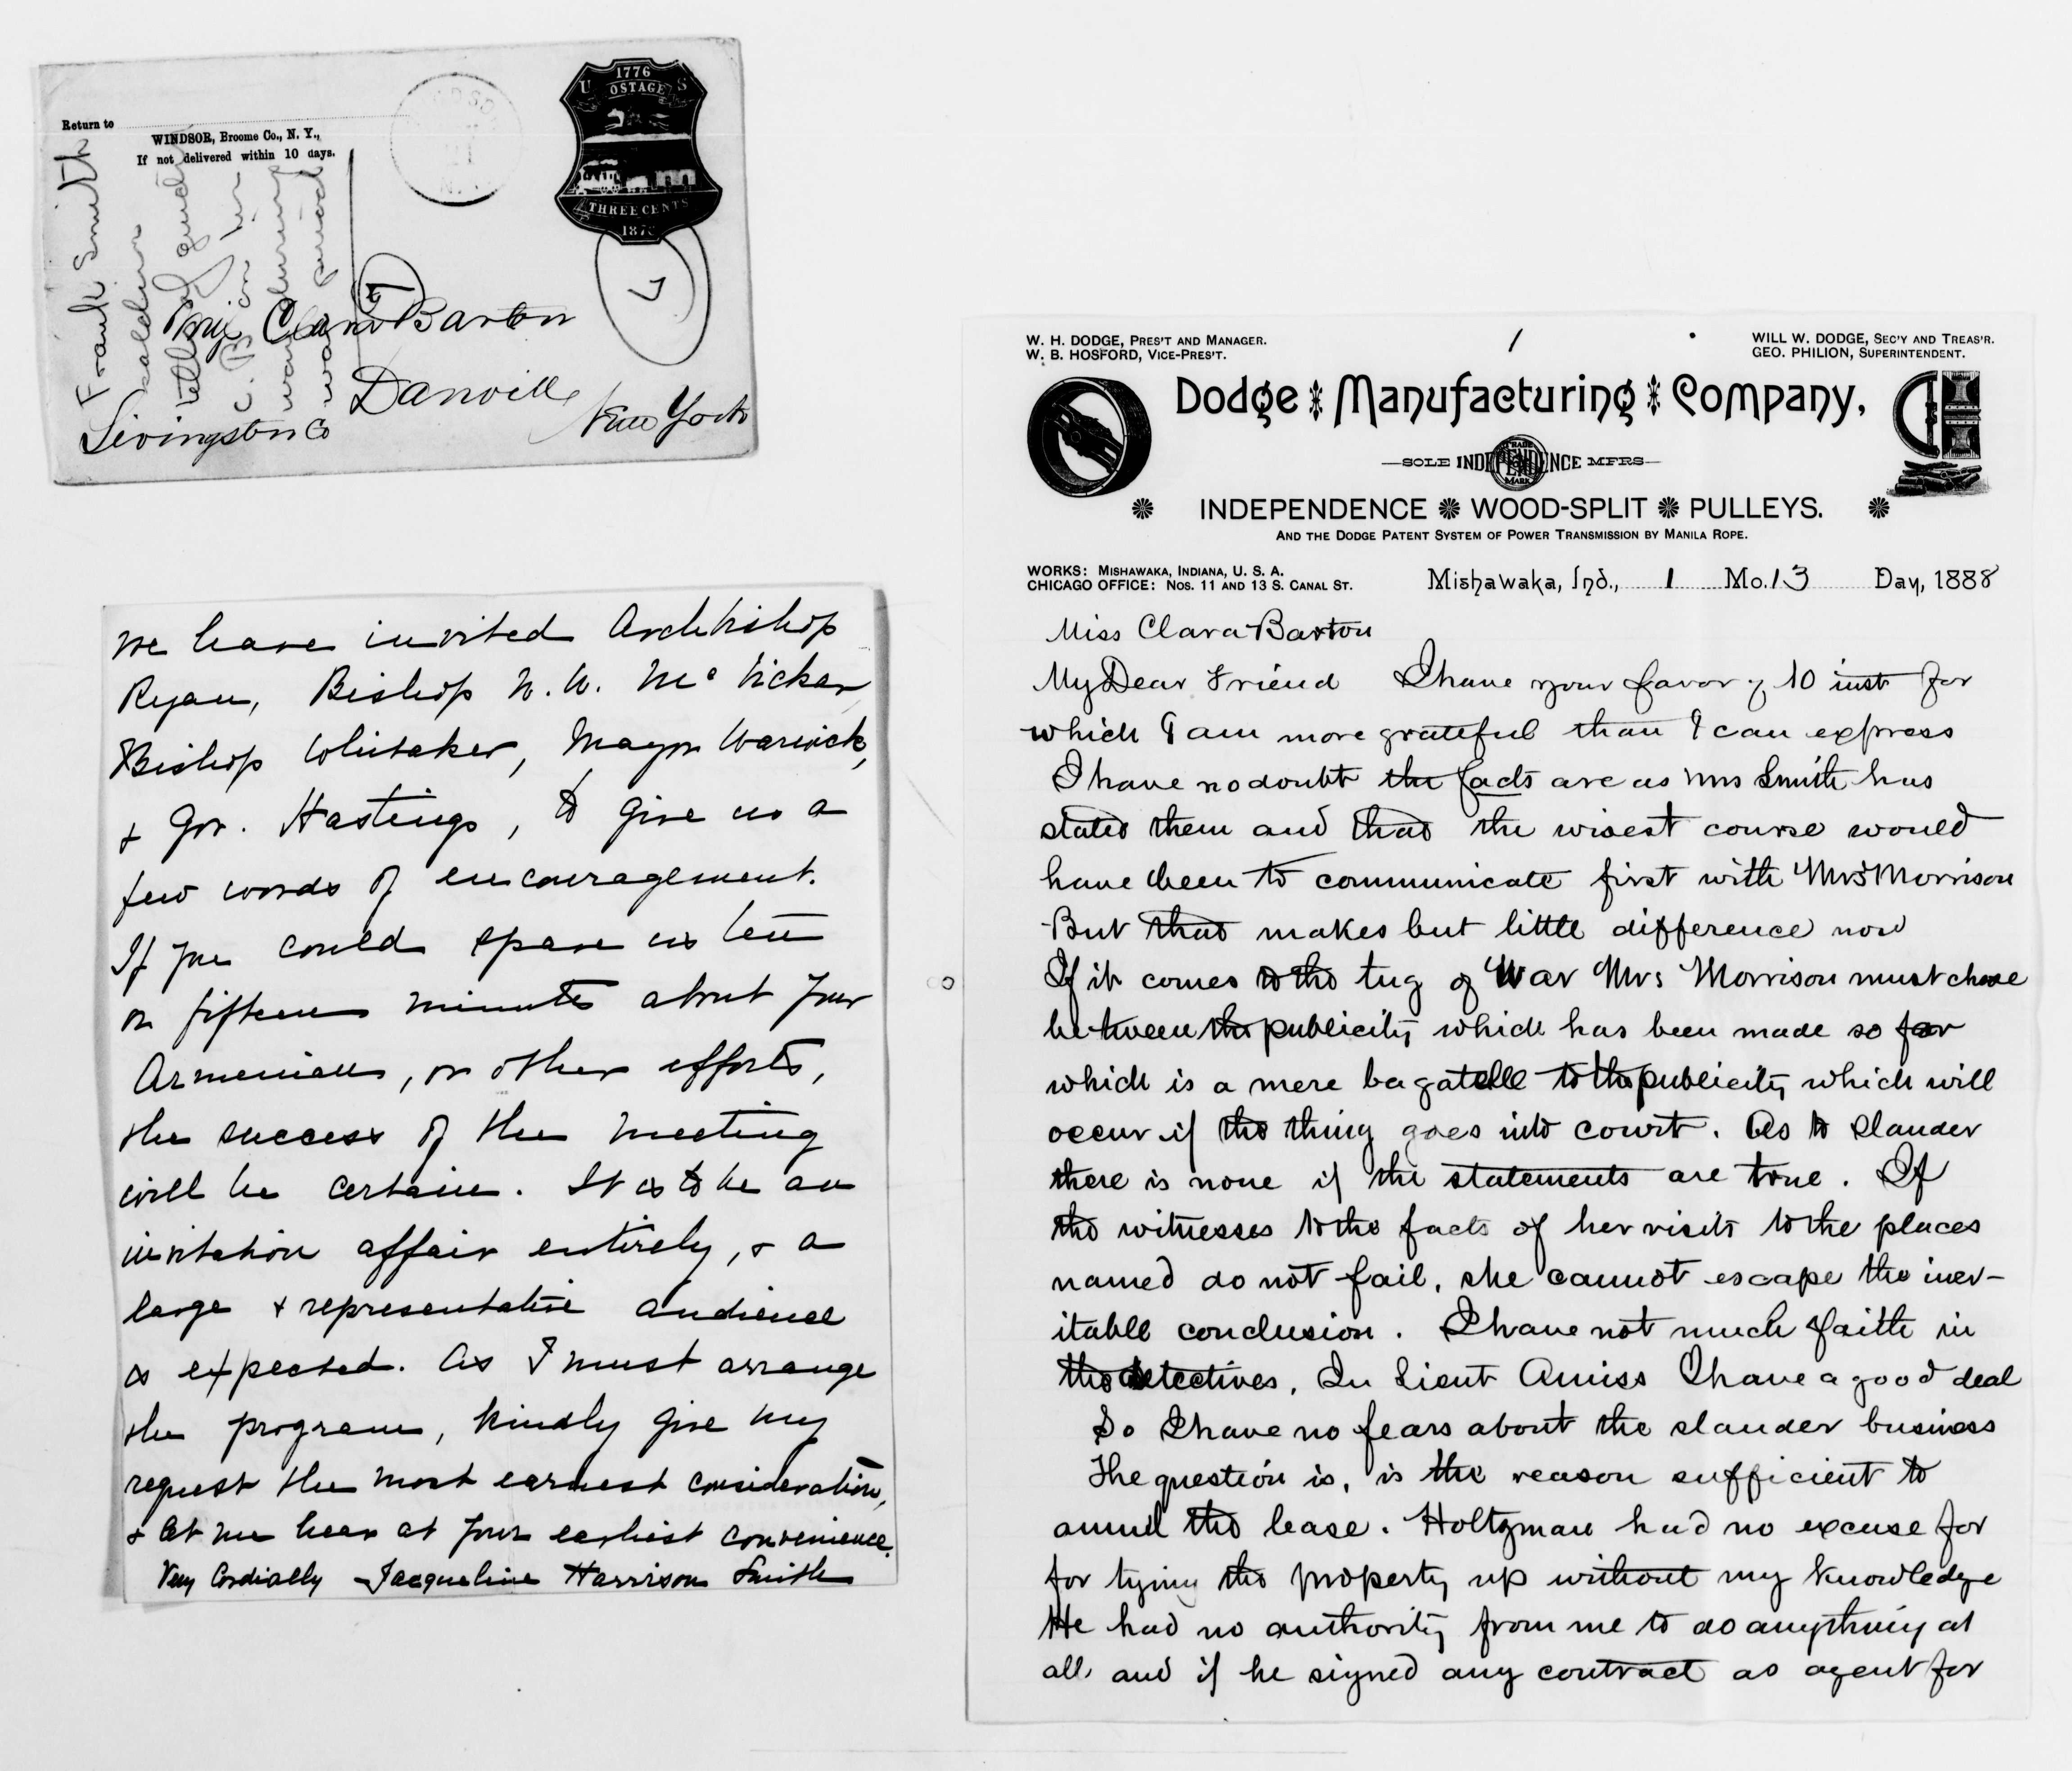 Return to
WINDSOR, Broome Co., N. Y.,
If not delivered within 10 days.
U 1776 S
OSTAGE
THREE CENTS
187
Frank Smith
Clara Barton
Danville
Livingston Co
New York
we have invited Archbishop
Ryan, Bishop N. W. McVickar
Bishop Whitaker, Mayor Warwick,
& Gov. Hastings, to give us a
few words of encouragement.
If you could spare us ten
or fifteen minutes about your
Armenian, or other efforts,
the success of the meeting
will be certain. It is to be an
invitation affair entirely, & a
large & representative audience
is expected. As I must arrange
the program, kindly give my
request the most earnest consideration,
& let me hear at your earliest convenience.
Very Cordially Jacqueline Harrison Smith
1
W. H. DODGE, PRES'T AND MANAGER.
W. B. HOSFORD, VICE-PRES'T.
WILL W. DODGE, SEC'Y AND TREAS'R.
GEO. PHILION, SUPERINTENDENT.
Dodge Manufacturing Company,
SOLE INDEPENDENCE MFRS
TRADE MARK
INDEPENDENCE WOOD-SPLIT PULLEYS.
AND THE DODGE PATENT SYSTEM OF POWER TRANSMISSION BY MANILA ROPE.
WORKS: MISHAWAKA, INDIANA, U. S. A.
CHICAGO OFFICE: NOS. 11 AND 13 S. CANAL ST.
Mishawaka, Ind., 1 Mo. 13 Day, 1888
Miss Clara Barton
My Dear Friend I have your favor of 10 inst for
which I am more grateful than I can express
I have no doubt the facts are as Mrs Smith has
stated them and that the wisest course would
have been to communicate first with Mrs Morrison
But that makes but little difference now
If it comes to the tug of War Mrs Morrison must chose
between the publicity which has been made so far
which is a mere bagatelle to the publicity which will
occur if the thing goes into court. As to slander
there is none if the statements are true. If
the witnesses to the facts of her visits to the places
named do not fail, she cannot escape the inev-
itable conclusion. I have not much faith in
the detectives, In Lieut Amiss I have a good deal
So I have no fears about the slander business
The question is, is the reason sufficient to
annul the lease. Holtzman had no excuse for
for tying the property up without my knowledge
He had no authority from me to do anything at
all, and if he signed any contract as agent for